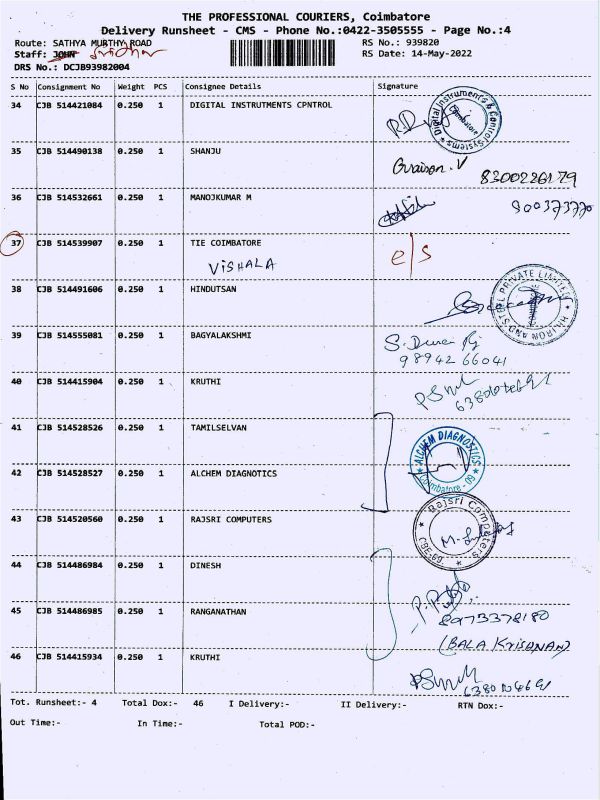 THE PROFESSIONAL COURIERS, Coimbatore
Delivery Runsheet - CMS - Phone No.:0422-3505555 - Page No.:4
Route: SATHYA MURTHY ROAD RS No.: 939820
Staff: JOHN Sridhar RS Date: 14-May-2022
DRS No.: DCJB93982004
S No Consignment No Weight PCS Consignee Details Signature
34 CJB 514421084 0.250 1 DIGITAL INSTRUTMENTS CPNTROL
Digital Instruments & Control Systems * Coimbatore
35 CJB 514490138 0.250 1 SHANJU
8300226179
36 CJB 514532661 0.250 1 MANOJKUMAR M
37 CJB 514539907 0.250 1 TIE COIMBATORE e/s
VISHALA
38 CJB 514491606 0.250 1 HINDUTSAN
IRON AND STEEL PRIVATE LIMITED
39 CJB 514555081 0.250 1 BAGYALAKSHMI
9894266041
40 CJB 514415904 0.250 1 KRUTHI
41 CJB 514528526 0.250 1 TAMILSELVAN
ALCHEM DIAGNOSTICS
Coimbatore - 09
42 CJB 514528527 0.250 1 ALCHEM DIAGNOTICS
43 CJB 514520560 0.250 1 RAJSRI COMPUTERS
Rajsri Computers
CBE-09.
44 CJB 514486984 0.250 1 DINESH
45 CJB 514486985 0.250 1 RANGANATHAN
8973378180
(BALA KRISONAN)
46 CJB 514415934 0.250 1 KRUTHI
Tot. Runsheet:- 4 Total Dox:- 46 I Delivery:- II Delivery:- RTN Dox:-
Out Time:- In Time:- Total POD:-